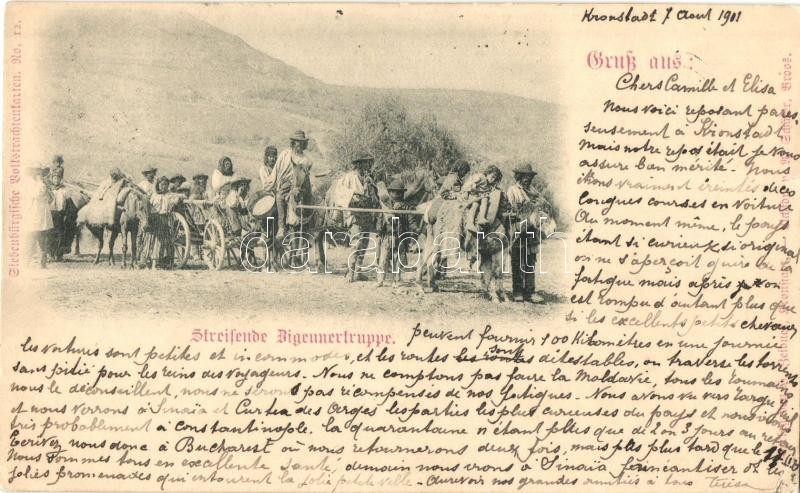 Siebenbürgische Volkstrachtenkarten. No. 12.
Kronstadt 7 Aout 1901
Gruß aus:
Chers Camille et Elisa
Nous voici reposant pares-
seusement à Kronstadt
mais notre repos était je vous
assure bien mérité. Nous
étions vraiment éreintés des
longues courses en voiture
Au moment même, le pays
étant si curieux, si original
on ne s'aperçoit guère de la
fatigue mais après, on
est rompu d'autant plus que
si les excellents petits chevaux
darabanth.com
Streifende Zigeunertruppe.
peuvent fournir 100 Kilomètres en une journée
les voitures sont petites et incommodes, et les routes sont détestables, on traverse les torrents
sans pitié pour les reins des voyageurs. Nous ne comptons pas faire la Moldavie, tous les
nous le déconseillent, nous ne serons pas récompensés de nos fatigues. Nous avons vu vers
et nous verrons à Sinaïa et Curtea des Arges les parties les plus curieuses du pays et nous
très probablement à Constantinople. la quarantaine n'étant plus que de 2 ou 3 jours au retour
Ecrivez nous donc à Bucharest où nous retournerons deux fois, mais pas plus tard que le
Nous sommes tous en excellente santé, demain nous irons à Sinaïa
jolies promenades qui entourent la jolie petite ville - Aurevoir nos grandes amitiés à tous